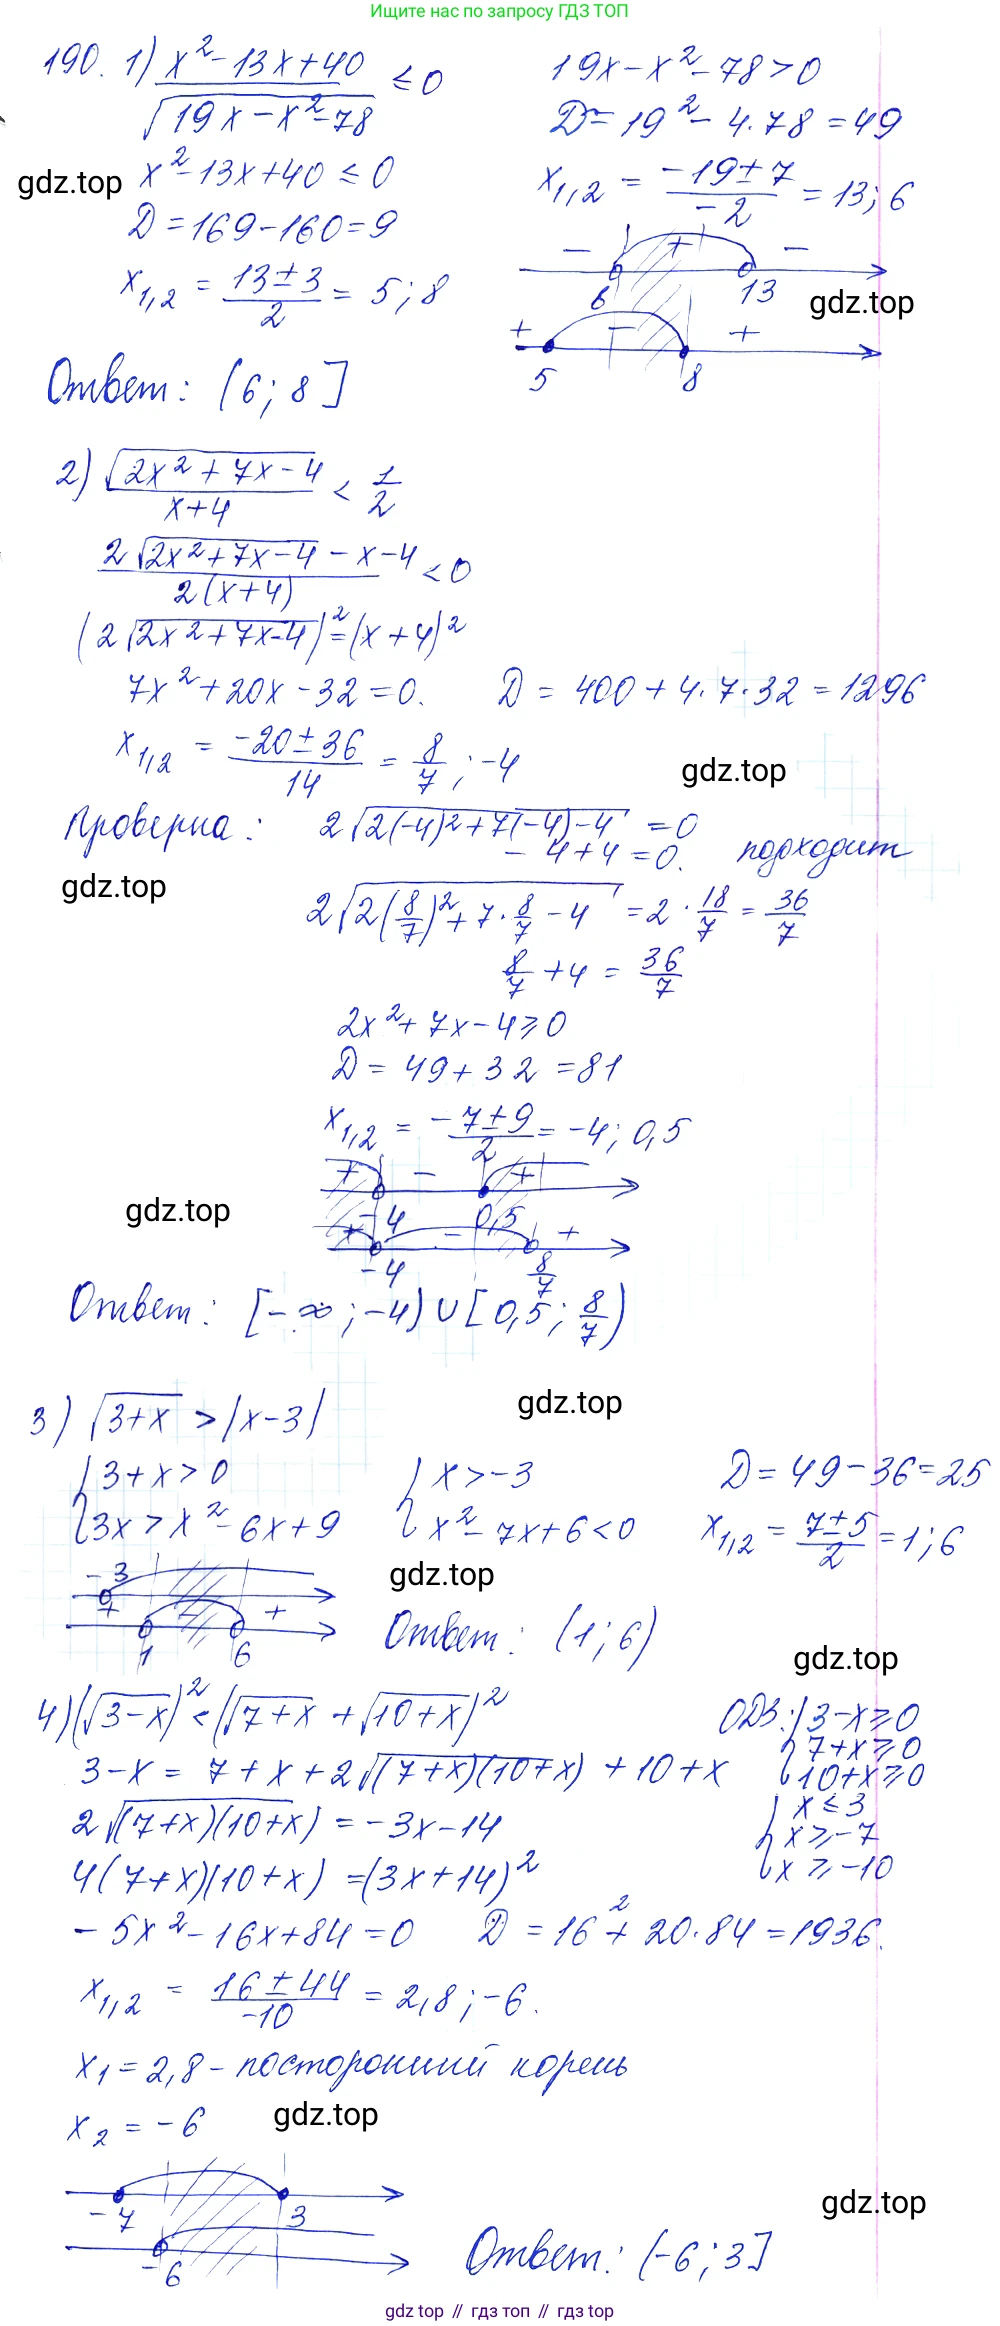 Ищите ответы по запросу ГДЗ ТОП
190. 1) (x² - 13x + 40)/√(19x - x² - 78) ≤ 0
19x - x² - 78 > 0
x² - 13x + 40 ≤ 0
D = 19² - 4·78 = 49
gdz.top
D = 169 - 160 = 9
x₁,₂ = (-19 ± 7)/-2 = 13; 6
x₁,₂ = (13 ± 3)/2 = 5; 8
- + -
6 13
gdz.top
+ - +
5 8
Ответ: (6; 8]
2) √(2x² + 7x - 4)/(x + 4) < 1/2
(2√(2x² + 7x - 4) - x - 4)/(2(x + 4)) < 0
(2√(2x² + 7x - 4))² = (x + 4)²
7x² + 20x - 32 = 0. D = 400 + 4·7·32 = 1296
x₁,₂ = (-20 ± 36)/14 = 8/7; -4
gdz.top
Проверка: 2√(2(-4)² + 7(-4) - 4) = 0
- 4 + 4 = 0. подходит
gdz.top
2√(2(8/7)² + 7·8/7 - 4) = 2·18/7 = 36/7
8/7 + 4 = 36/7
2x² + 7x - 4 ≥ 0
D = 49 + 32 = 81
x₁,₂ = (-7 ± 9)/2 = -4; 0,5
+ - +
gdz.top
-4 0,5
+ - +
-4 8/7
Ответ: [-∞; -4) ∪ [0,5; 8/7)
gdz.top
3) √(3+x) > |x-3|
{3 + x > 0 {x > -3 D = 49 - 36 = 25
{3x > x² - 6x + 9 {x² - 7x + 6 < 0 x₁,₂ = (7 ± 5)/2 = 1; 6
-3
gdz.top
+ - +
1 6
Ответ: (1; 6)
gdz.top
4) (√(3-x))² < (√(7+x) + √(10+x))²
ОДЗ: {3-x ≥ 0
7+x ≥ 0
10+x ≥ 0
3 - x = 7 + x + 2√((7+x)(10+x)) + 10 + x
{x ≤ 3
x ≥ -7
x ≥ -10
2√((7+x)(10+x)) = -3x - 14
4(7+x)(10+x) = (3x+14)²
- 5x² - 16x + 84 = 0 D = 16² + 20·84 = 1936.
x₁,₂ = (16 ± 44)/-10 = 2,8; -6.
x₁ = 2,8 - посторонний корень
x₂ = -6
gdz.top
-7 3
gdz.top
-6
Ответ: (-6; 3]
gdz top // гдз топ // гдз top